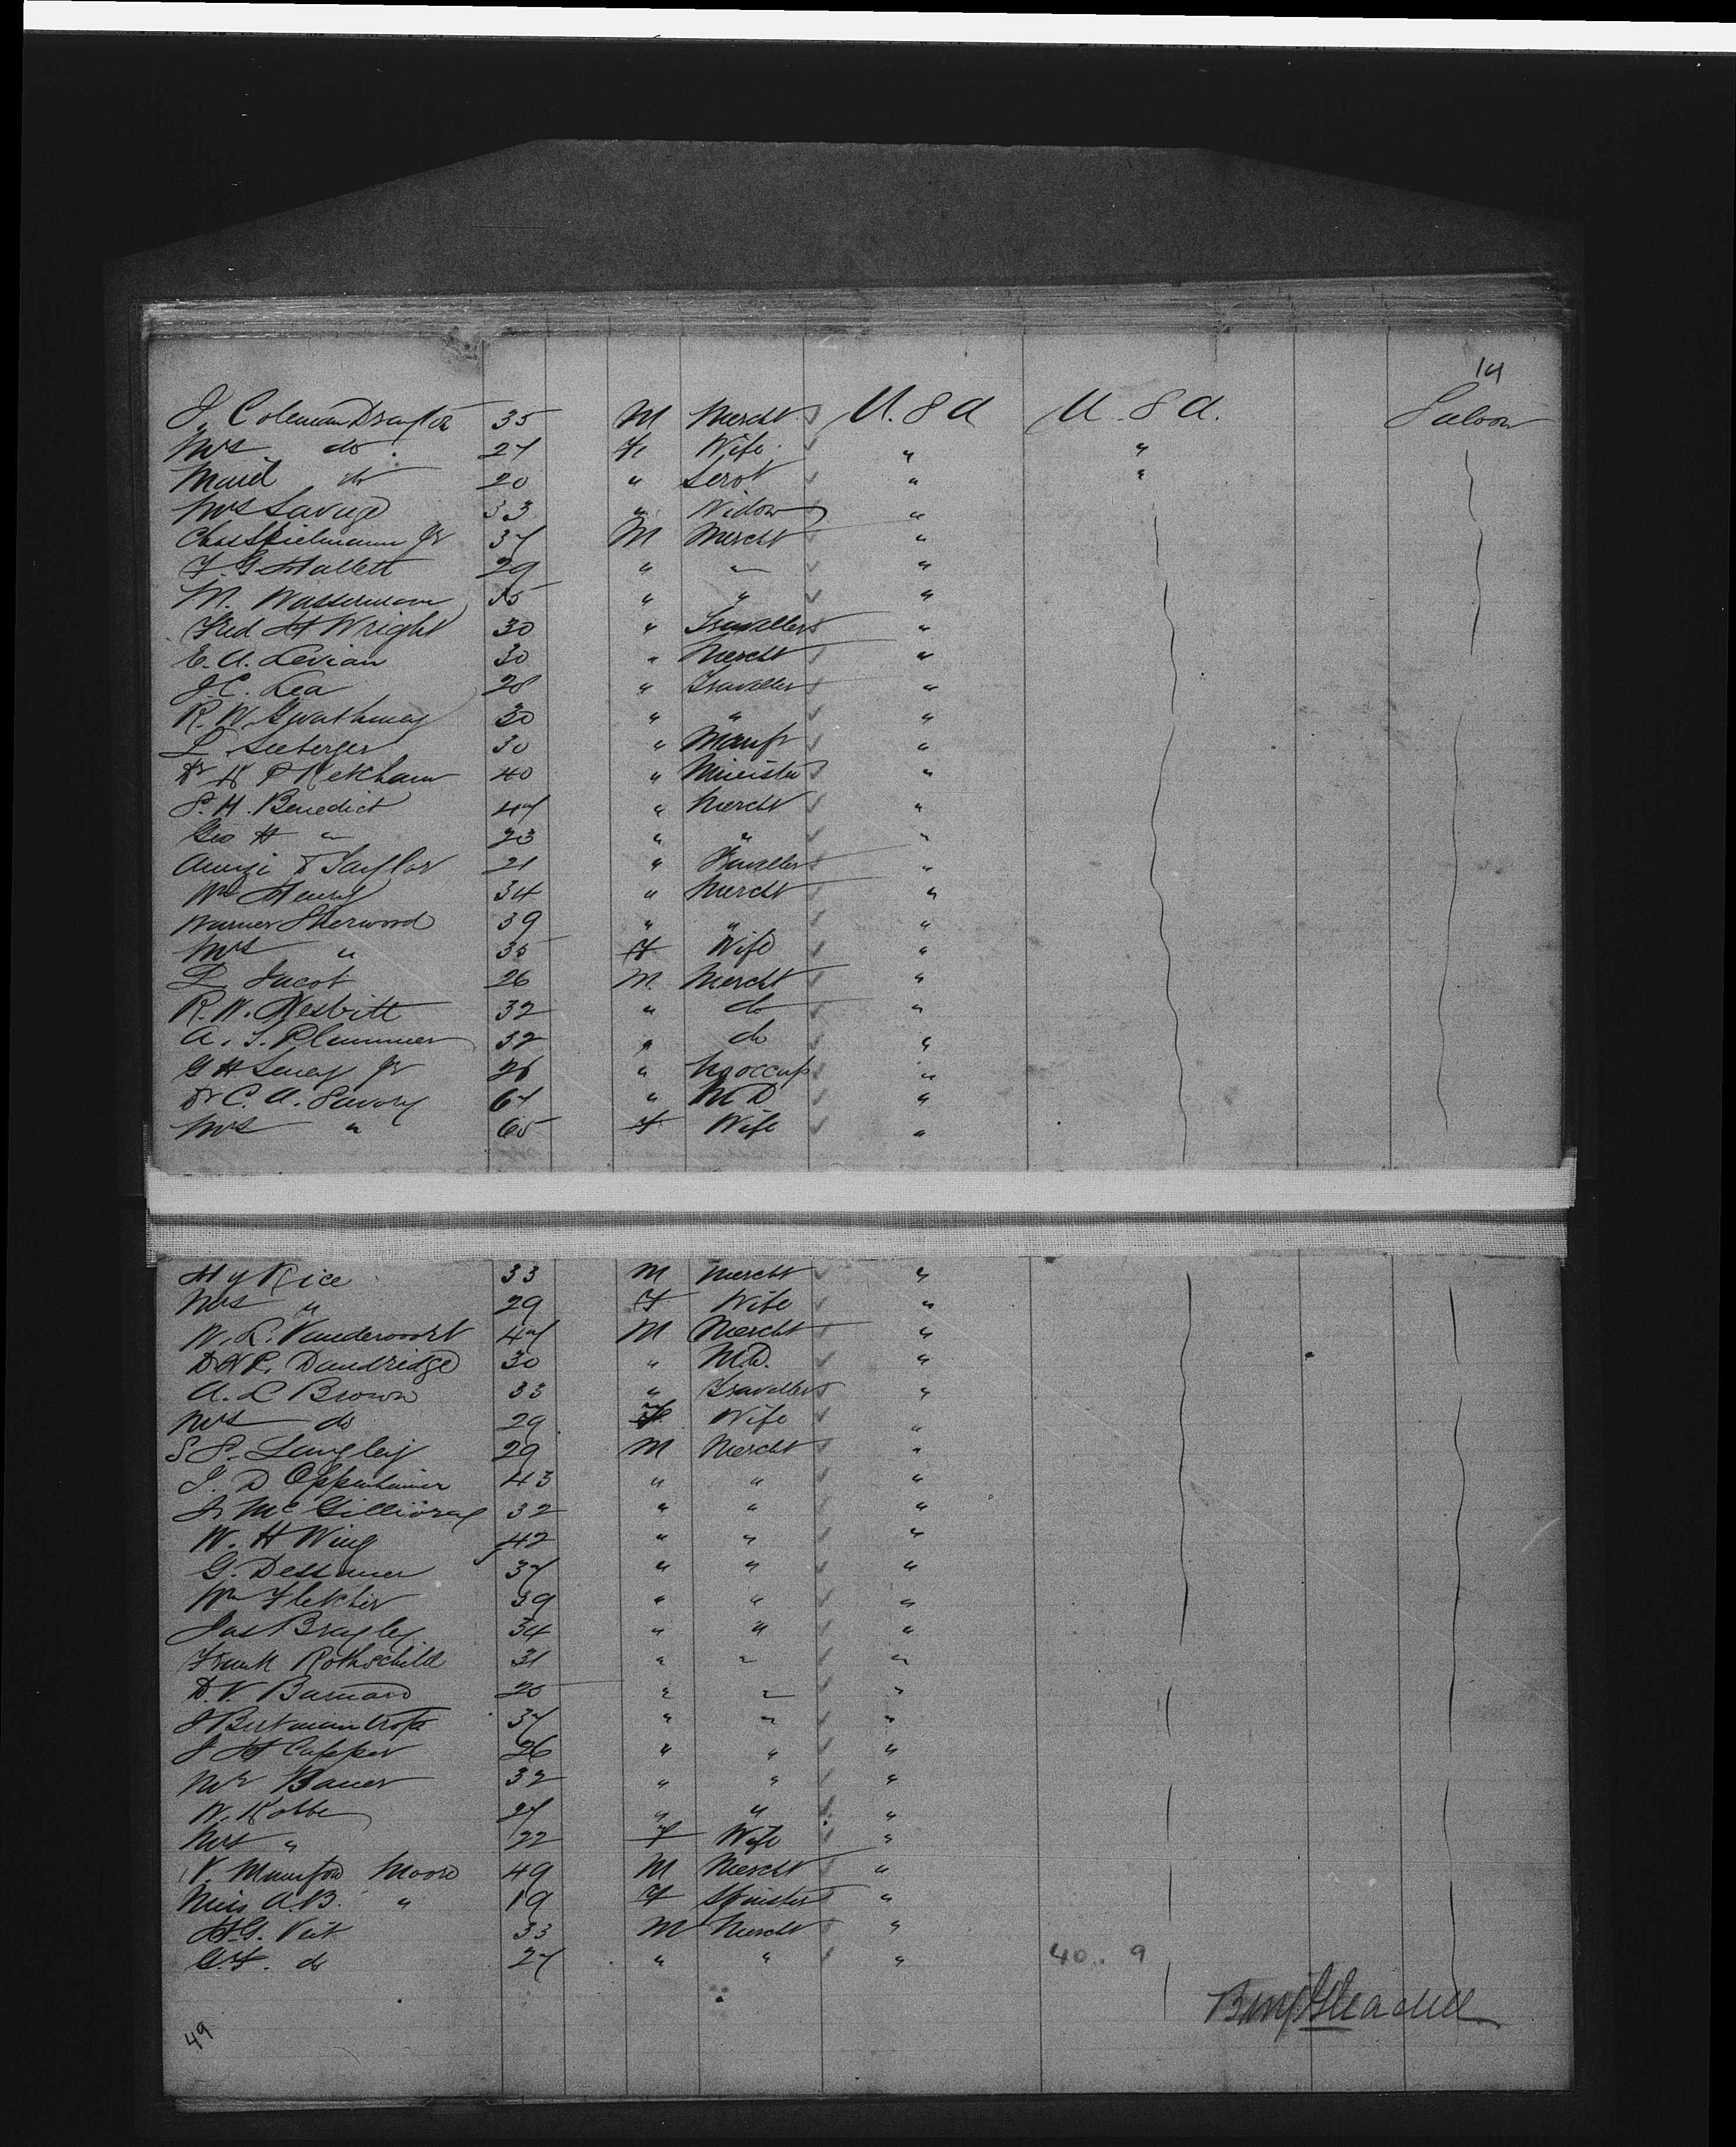 14
J. Coleman Drayton 35 M Mercht U.S.A U.S.A. Saloon
Mrs do. 27 Fe Wife " "
Maid do 20 " Servt " "
Mrs Savage 33 " Widow "
Chas Spielmann Jr 37 M Mercht "
F. G. Hallett 29 " " "
M. Wasserman " " "
Fred H Wright 30 " Travellers "
E. A. Levian 30 " Mercht "
J. C. Lea 28 " Traveller "
R. W. Gwathmey 30 " " "
L. Seeberger 30 " Manfr "
Dr H Kekham 40 " Minister "
S. H. Benedict 47 " Mercht "
Geo H " 23 " " "
Amzi Taylor 21 " Traveller "
Wm Henry 34 " Mercht "
Warner Sherwood 39 " " "
Mrs " 35 F Wife "
L. Jacot 26 M. Mercht "
R. W. Nesbitt 32 " do "
A. S. Plummer 32 " do "
G H Seney Jr 26 " No occup "
Dr C. A. Savory 67 " M D "
Mrs " 65 F Wife "
Hy Rice 33 M Mercht "
Mrs " 29 F Wife "
W. R. Vandervoort 47 M Mercht "
Dr Dandridge 30 " M.D. "
A. L Brown 33 " Travellers "
Mrs do 29 F. Wife "
S S. Langley 29 M Mercht "
J. D Oppenheimer 43 " " "
Mc Gillivray 32 " " "
W. H Wing 42 " " "
G. Dessauer 37 " " "
Wm Fletcher 39 " " "
Jas Brayley 34 " " "
Frank Rothschild 31 " " "
D. V. Barnard 20 " " "
J 37 " " "
J H Capper 26 " " "
Mr Bauer 32 " " "
W. Kobbe 27 " " "
Mrs " 22 F Wife "
V. Mumford Moore 49 M Mercht "
Miss A. B. " 19 F Spinster "
H. G. Veit 33 M Mercht "
G. F. do 27 " " " 40.. 9
49